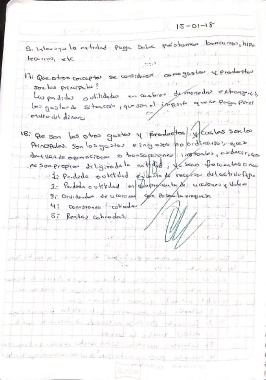 15-01-18
S. Intereses que la entidad paga sobre préstamos bancarios, hipo
tecarios, etc
17: Que otros conceptos se consideran como gastos y Productos
son los principales?
Las perdidas o utilidades en cambios de monedas extranjeras,
los gastos de situación, que son el importe que se paga por el
envio del dinero
18: Que son los otros gastos y productos y cuales son los
Principales. Son los gastos e ingresos no ordinarios, que
derivan de operaciones o transacciones inusuales, es decir, que
no son propias del giro de la entidad, y
1: Perdida o utilidad en venta de del activo fijo
2: Perdida o utilidad en compraventa de acciones y valores
3: Dividendos de acciones que posea la empresa
4: comisiones cobradas
5: Rentas cobradas